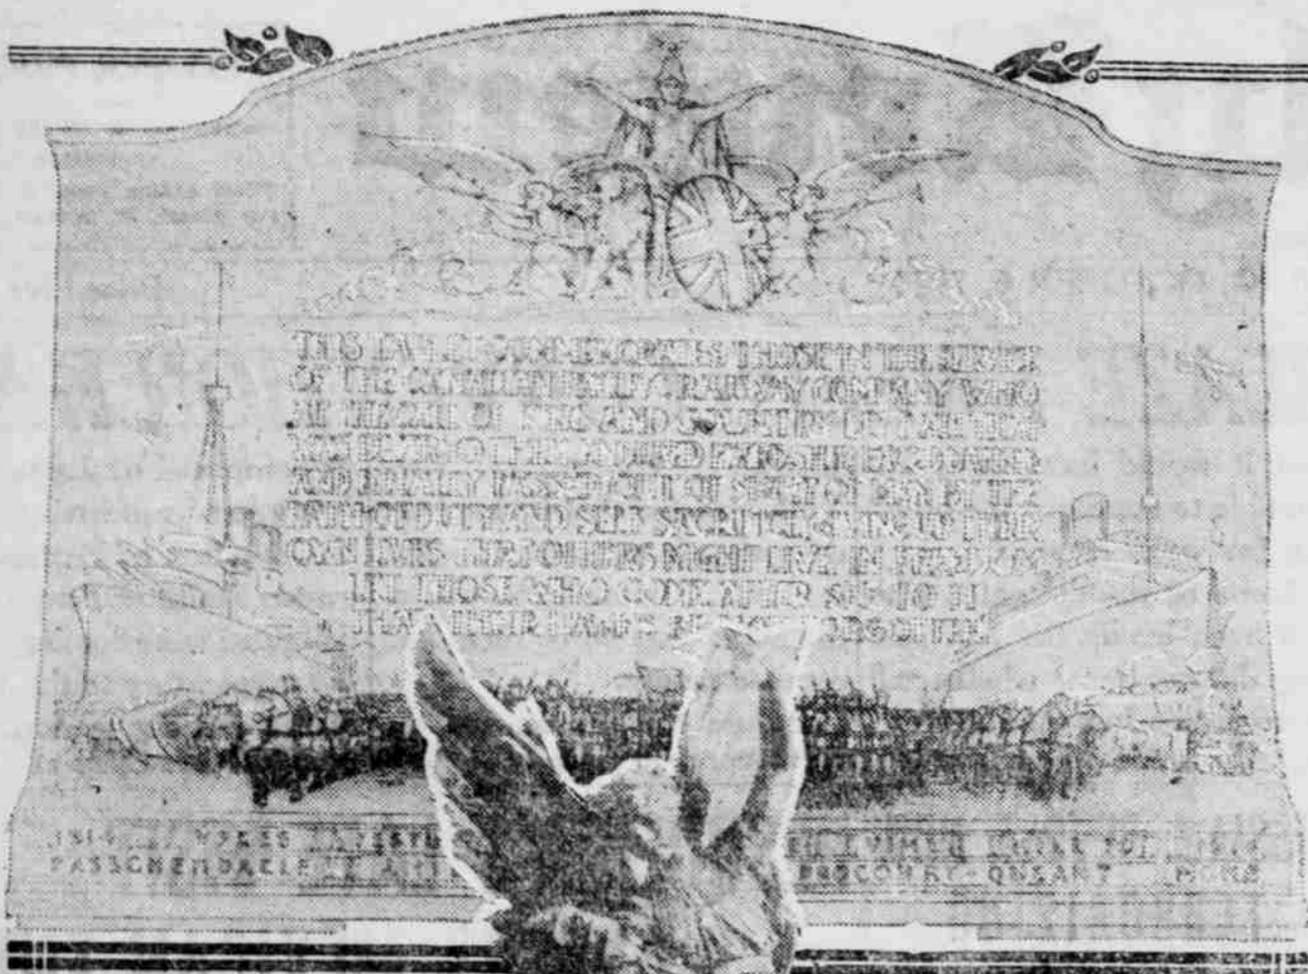 THIS TABLET COMMEMORATES THOSE IN THE SERVICE
OF THE CANADIAN PACIFIC RAILWAY COMPANY WHO
AT THE CALL OF KING AND COUNTRY LEFT ALL THAT
WAS DEAR TO THEM ENDURED HARDSHIP FACED DANGER
AND FINALLY PASSED OUT OF SIGHT OF MEN BY THE
PATH OF DUTY AND SELF SACRIFICE, GIVING UP THEIR
OWN LIVES THAT OTHERS MIGHT LIVE IN FREEDOM
LET THOSE WHO COME AFTER SEE TO IT
THAT THEIR NAMES BE NOT FORGOTTEN
YPRES FESTUB
PASSCHENDAELE QUEANT MONS